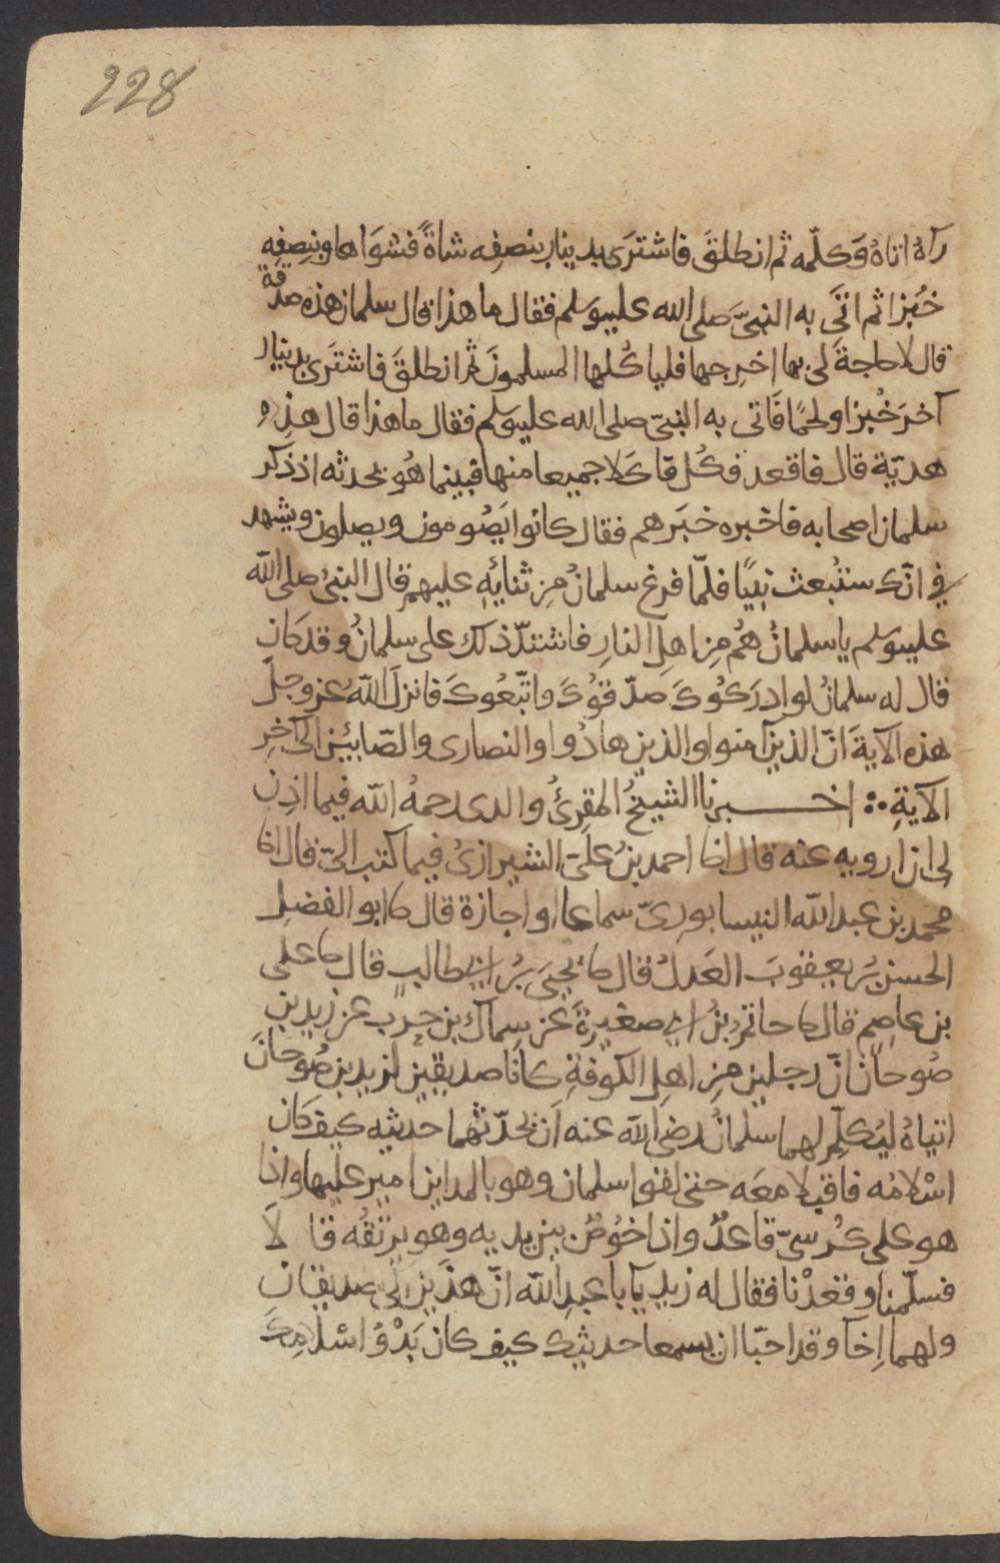 228
رآهُ اتاهُ وَكلّمه ثم انطلقَ فاشترَى بدينارٍ بنصفِه شاةً فشوَاها وبنِصفِه
خُبزا ثم اتَى به النبيَّ صلى الله عليه وسَلم فقال ما هذا قال سلمان هذه صدقة
قال لا حاجةَ لى بها اخرِجها فلياكُلها المسلمونَ ثم انطلقَ فاشترَى بدينارٍ
آخرَ خُبزا ولحمًا فَاتى به النبىّ صلى الله عليه وسَلم فقال ما هذا قال هذِه
هديّة قال فاقعد فكُل فاكَلا جميعا منها فبينما هُو يحدثه اذ ذكر
سلمان اصحابه فاخبره خبَرهم فقال كانوا يَصُومون ويصلون ويشهد
في انّك ستُبعث نبيًا فلمّا فرغ سلمانُ مِن ثنائِهِ عليهم قال النبىُ صلى الله
عليه وسَلم يا سلمانُ هُم مِن اهلِ النارِ فاشتدّ ذلك على سلمانُ وقد كَان
قال له سلمانُ لو ادرَكُوكَ صدّقوُكَ واتّبعُوكَ فانزلَ اللّهُ عز وجلّ
هذه الآيةَ انّ الذين آمنوا والذين هادُوا والنصارى والصّابئين الى آخِرِ
الآيةِ ∴ اخــبرنا الشيخُ المقرِئُ والدى رحمهُ اللّه فيما اذِن
لى ان ارويه عنه قال انا احمد بنُ علىّ الشيرازىُ فيما كتب الىّ قال انا
محمد بن عبد اللّه النيسابورىّ سماعا او اجازة قال نا ابو الفضلِ
الحسن بنُ يعقوبَ العَدلُ قال نا يحيَى بنُ ابي طالبٍ قال نا على
بن عاصِمٍ قال نا حاتمُ بنُ ابي صغيرةَ عن سِماك بن حربٍ عن زيد بنِ
صُوحانَ انّ رجلين مِن اهلِ الكوفةِ كانَا صديقين لزيد بن صُوحانَ
اتياهُ ليُكلّم لهما سلمانَ رضى اللّه عنه اَن يحدّثهما حديثه كيف كَان
اسْلامُه فاقبلا معَه حتى لقوا سلمان وهو بالمداين امير عليها واذا
هو على كُرسىّ قاعدٌ واذا خُوصٌ بين يديه وهو يرتقُه قا لَا
فسلّمنا وقعَدْنا فقال له زيد يآبا عبدِ اللّه انّ هذَين لى صديقانِ
ولهما إخآ وقد احبّا ان يسمعا حديثك كيف كان بَدْوُ اسْلامِكَ